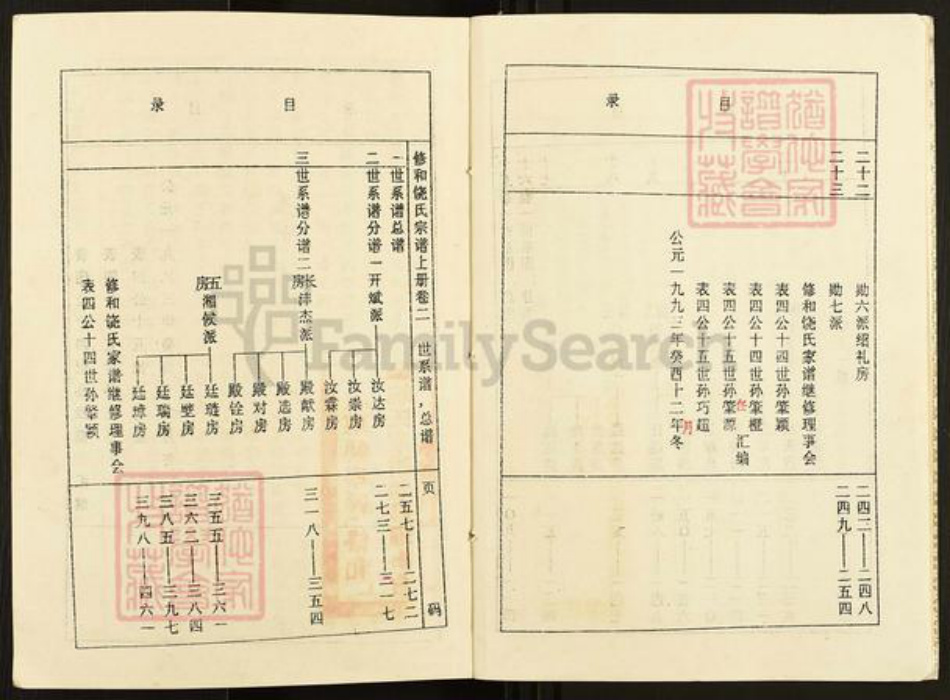 目 录
二十二
勋六派绍礼房
二四二——二四八
二十三
勋七派
二四九——二五四
修和饶氏家谱继修理事会
表四公十四世孙肇颖
表四公十四世孙肇橙
表四公十五世孙肇源
表四公十五世孙巧超
汇编
公元一九九三年癸酉十二年冬
月
目 录
修和饶氏宗谱上册卷二 世系谱，总谱
页码
一世系谱总谱
二五七——二七二
二世系谱分谱一开斌派
汝达房
汝崇房
汝霖房
二七三——三一七
三世系谱分谱二
长房沣杰派
殿猷房
殿选房
殿对房
殿铨房
三一八——三五四
五房湘候派
廷琏房
三五五——三六一
廷墅房
三六二——三八四
廷瑞房
三八五——三九七
廷璋房
三九八——四六一
修和饶氏家谱继修理事会
表四公十四世孙肇颖
FamilySearch
谱学会
收藏
谱学会
收藏